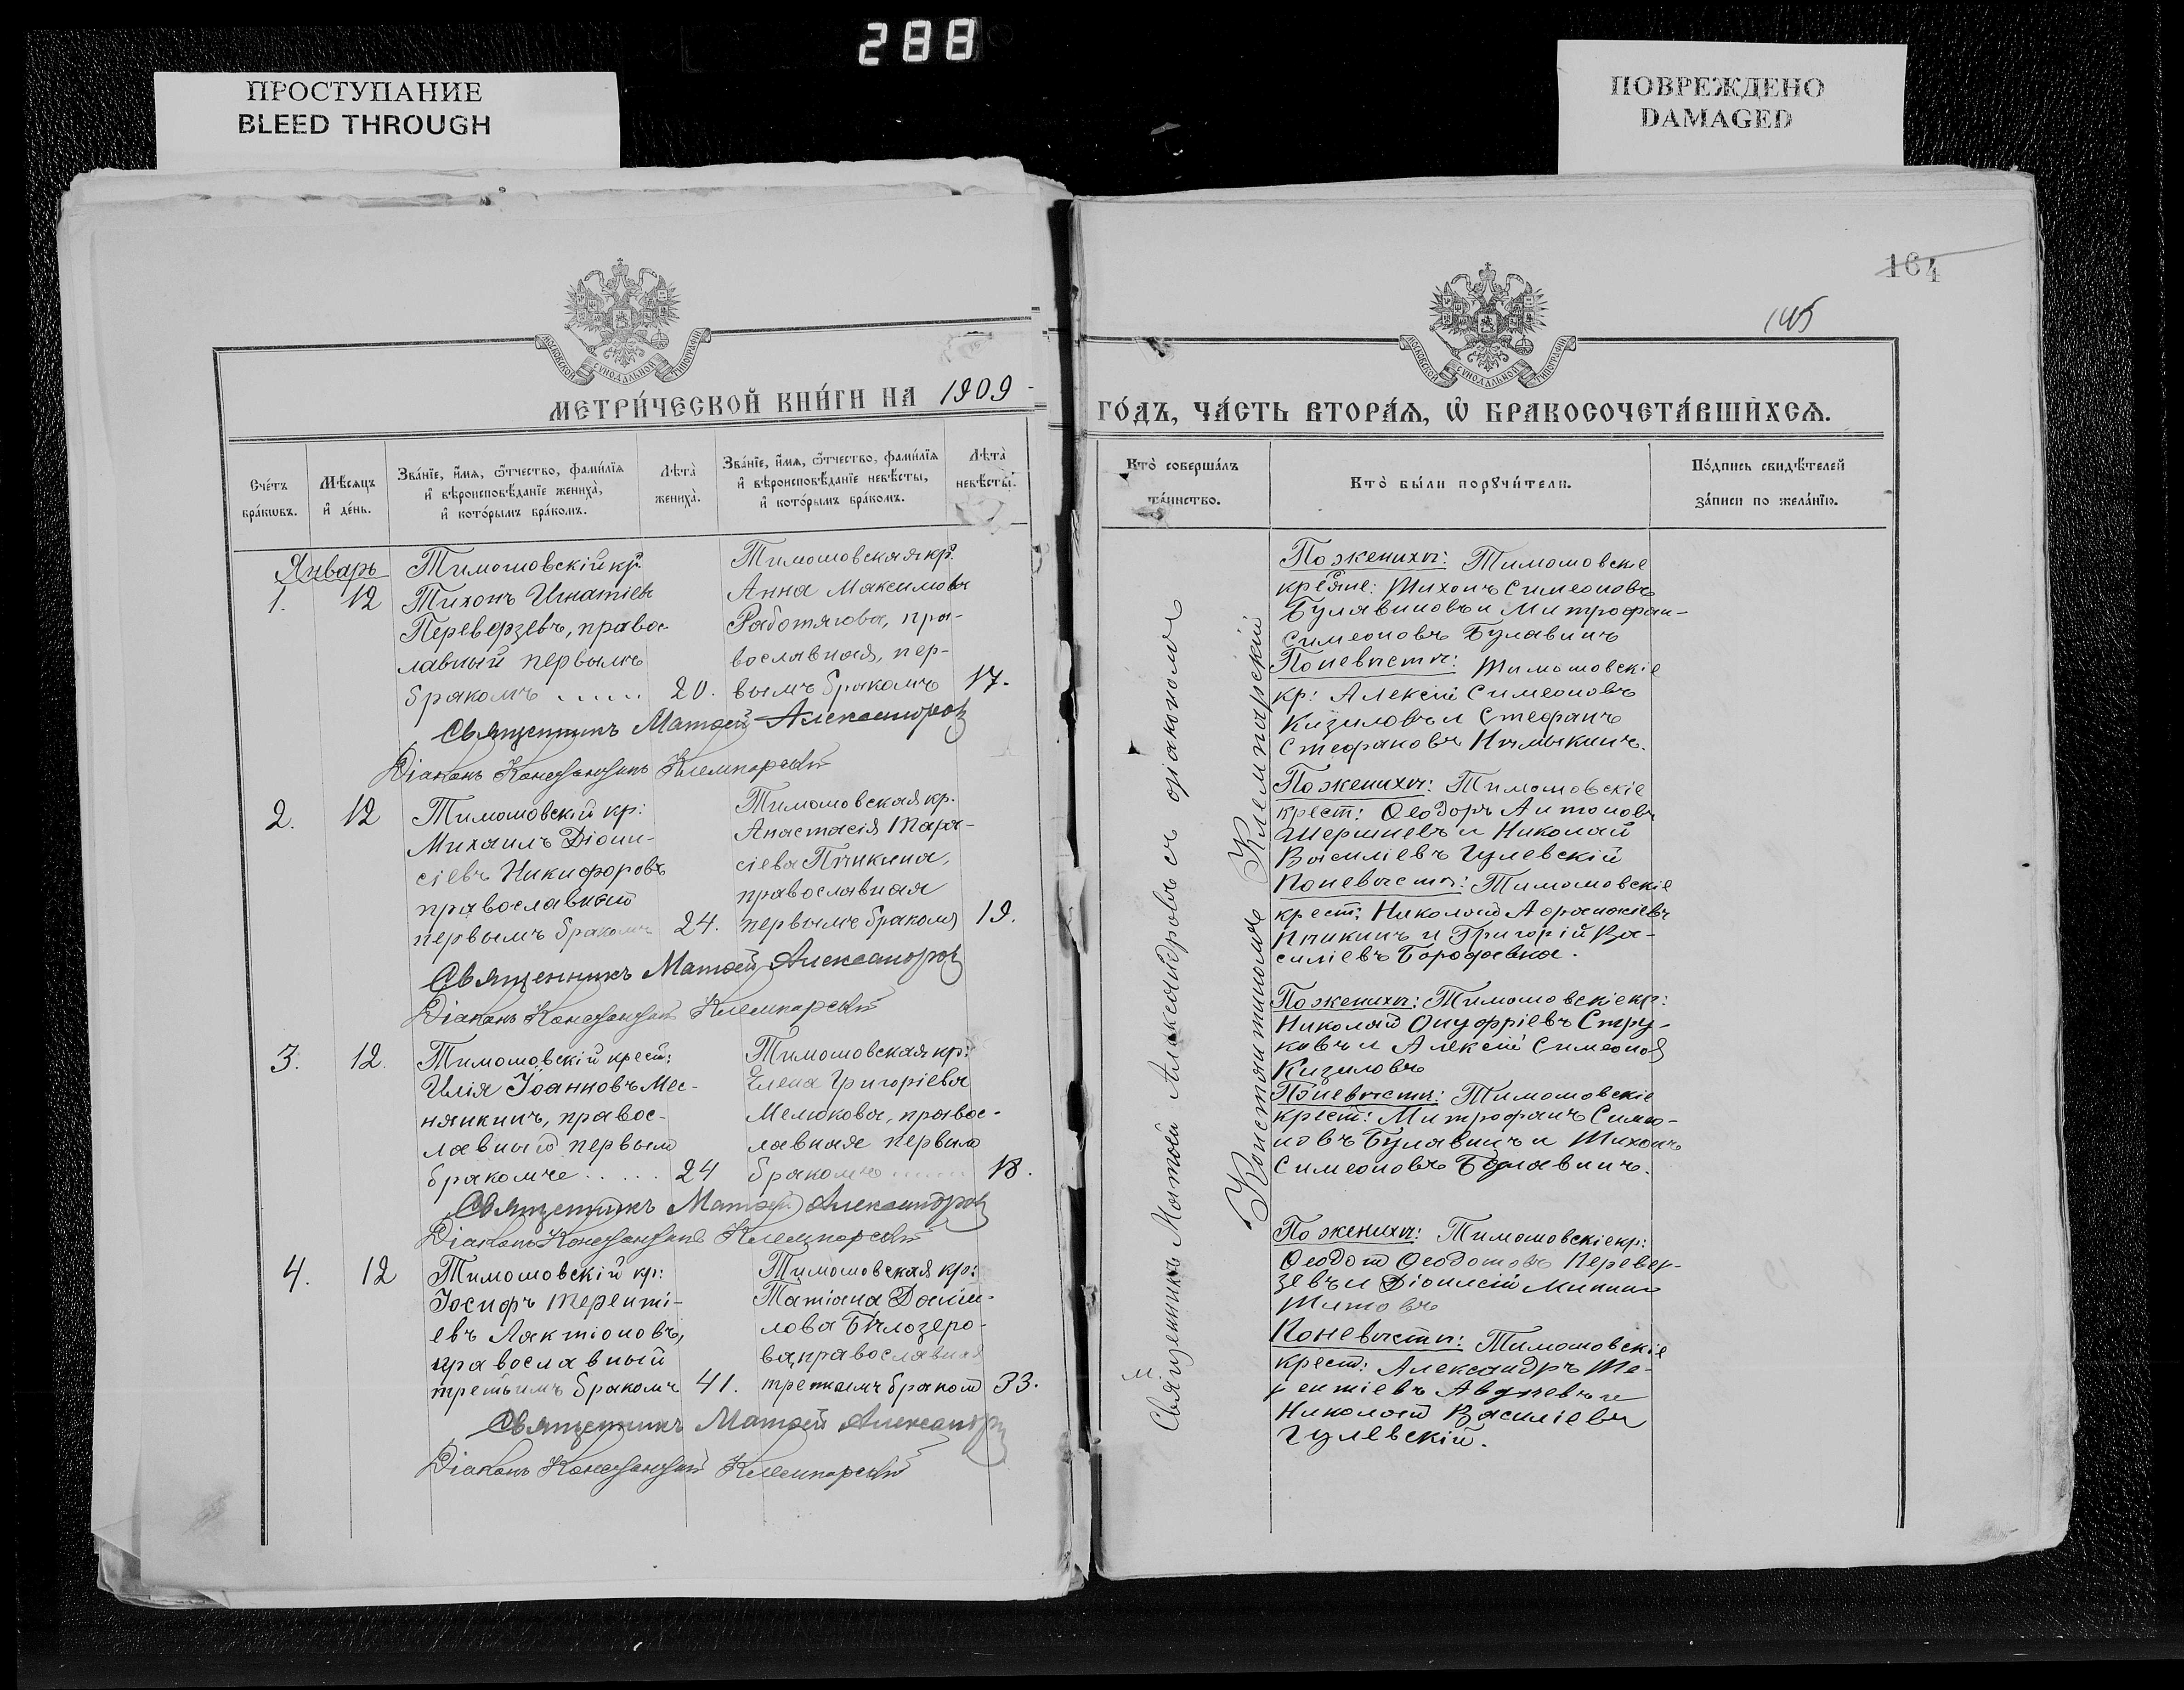 288
ПРОСТУПАНИЕ
BLEED THROUGH
ПОВРЕЖДЕНО
DAMAGED
164
145
МОСКОВСКОЙ СУНОДАЛЬНОЙ ТИПОГРАФІИ
МЕТРИ́ЧЕСКОЙ КНИ́ГИ НА 1909
Сче́тъ бра́кѡвъ.
Мѣ́сяцъ и҆ де́нь.
Зва́нїе, и҆́мѧ, ѻ҆́тчество, фами́лїѧ
и҆ вѣроисповѣ́данїе жениха̀,
и҆ кото́рымъ бра́комъ.
Лѣ́та̀
жениха̀.
Зва́нїе, и҆́мѧ, ѻ҆́тчество, фами́лїѧ
и҆ вѣроисповѣ́данїе невѣ́сты,
и҆ кото́рымъ бра́комъ.
Лѣ́та̀
невѣ́сты.
Январь
1. 12
Тимошовскій кр.
Тихонъ Игнатіевъ
Переверзевъ, правос-
лавный первымъ
бракомъ ...... 20.
Тимошовская кр.
Анна Максимова
Работягова, пра-
вославная, пер-
вымъ бракомъ 17.
Священникъ Матѳей Александровъ
Діаконъ Константинъ Клемпарскій
2. 12
Тимошовскій кр:
Михаилъ Діони-
сіевъ Никифоровъ
православный
первымъ бракомъ 24.
Тимошовская кр.
Анастасія Тара-
сіева Пѣикина,
православная
первымъ бракомъ 19.
Священникъ Матѳей Александровъ
Діаконъ Константинъ Клемпарскій
3. 12.
Тимошовскій крест:
Илія Іоанновъ Мес-
нянкинъ, правос-
лавный первымъ
бракомъ ..... 24
Тимошовская кр:
Елена Григоріева
Мелюкова, правос-
лавная первымъ
бракомъ ...... 18.
Священникъ Матѳей Александровъ
Діаконъ Константинъ Клемпарскій
4. 12
Тимошовскій кр:
Іосифъ Теренті-
евъ Лактіоновъ,
православный
третьимъ бракомъ 41.
Тимошовская кр:
Татіана Даніи-
лова Бѣлозеро-
ва, православная
третьимъ бракомъ 33.
Священникъ Матѳей Александровъ
Діаконъ Константинъ Клемпарскій
ГО́ДЪ, ЧА́СТЬ ВТОРА́Ѧ, Ѡ҆ БРАКОСОЧЕТА́ВШИХСѦ.
Кто̀ соверша́лъ
та́инство.
Кто̀ бы́ли порꙋчи́тели.
По́дпись свидѣ́телей
за́писи по жела́нїю.
Священникъ Матѳей Александровъ съ діакономъ
Константиномъ Клемпарскій
По женихѣ: Тимошовскіе
крестьяне: Тихонъ Симеоновъ
и Митрофан-
Симеоновъ Булавинъ
По невѣстѣ: Тимошовскіе
кр: Алексій Симеоновъ
Кизиловъ и Стефанъ
Стефановъ
По женихѣ: Тимошовскіе
крест: Ѳеодоръ Антоновъ
Шершневъ и Николай
Василіевъ Гулевскій
По невѣстѣ: Тимошовскіе
крест: Николай
и Григорій Ва-
силіевъ
По женихѣ: Тимошовскіе кр:
Николай Онуфріевъ Стру-
ковъ и Алексій Симеоновъ
Кизиловъ
По невѣстѣ: Тимошовскіе
крест: Митрофанъ Симео-
новъ Булавинъ и Тихонъ
Симеоновъ Булавинъ.
По женихѣ: Тимошовскіе кр:
Ѳеодотъ Ѳеодотовъ Перевер-
зевъ и Діонисій
Титовъ
По невѣстѣ: Тимошовскіе
крест: Александръ Те-
рентіевъ и
Николай Василіевъ
Гулевскій.